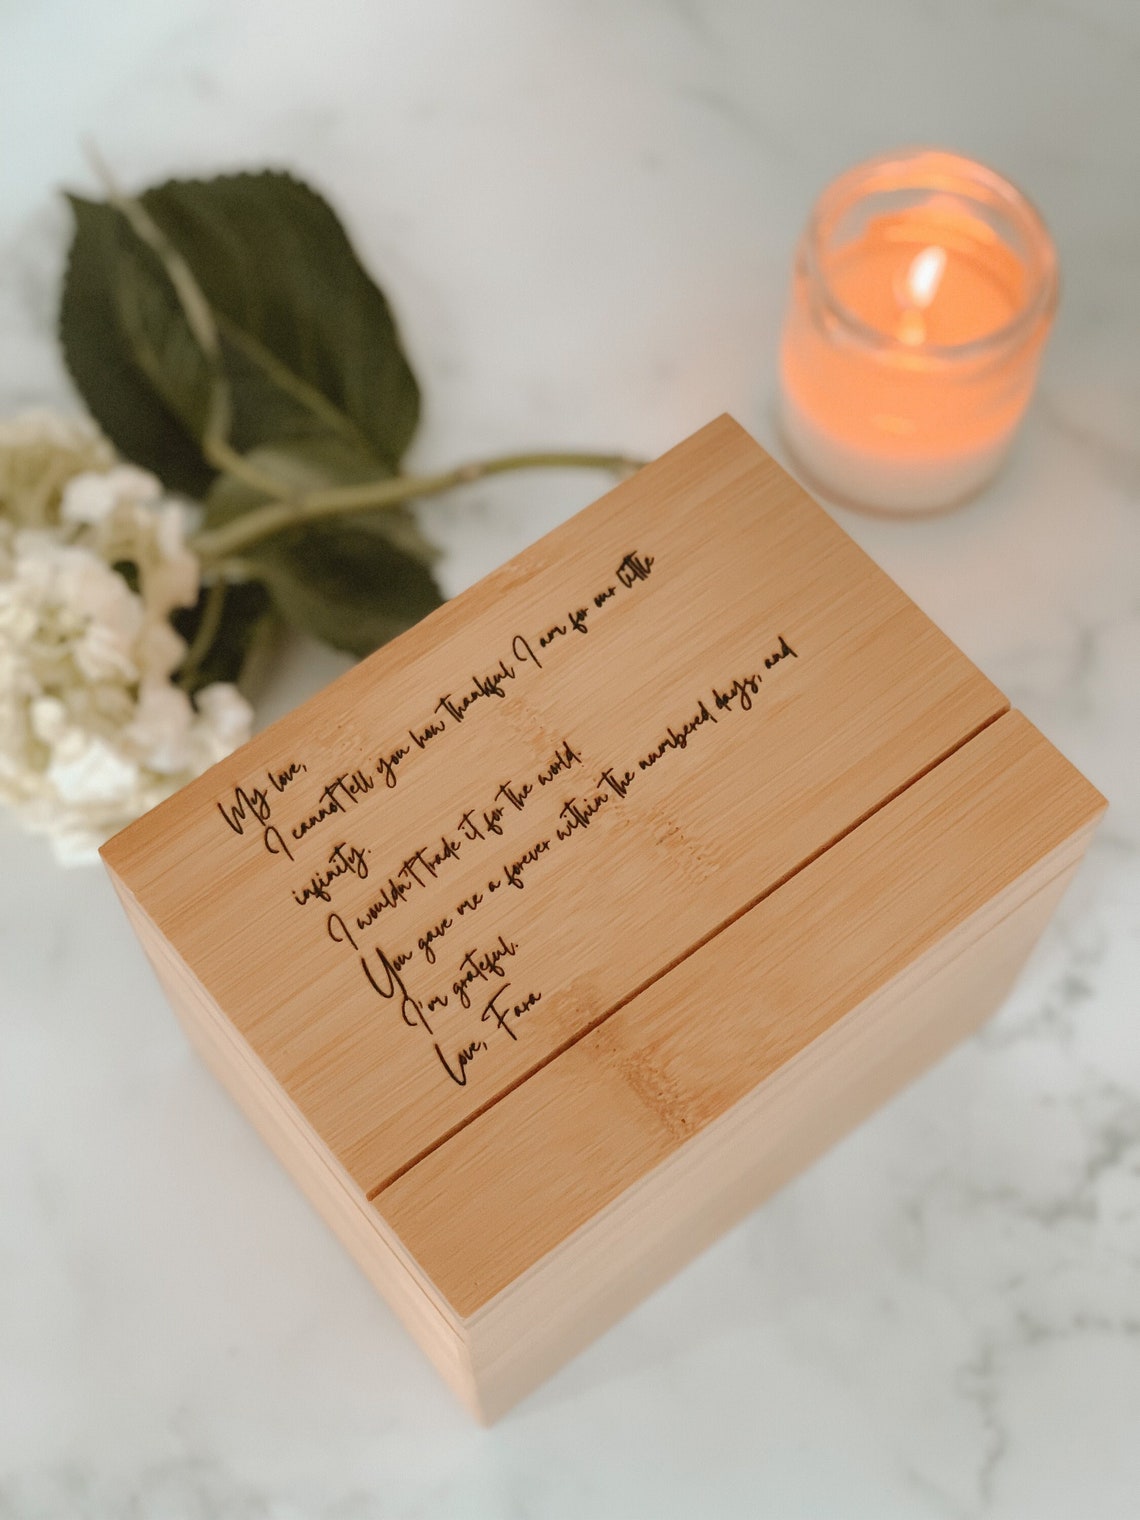 My love,
I cannot tell you how thankful I am for our little
infinity.
I wouldn't trade it for the world.
You gave me a forever within the numbered days, and
I'm grateful.
Love, Fara